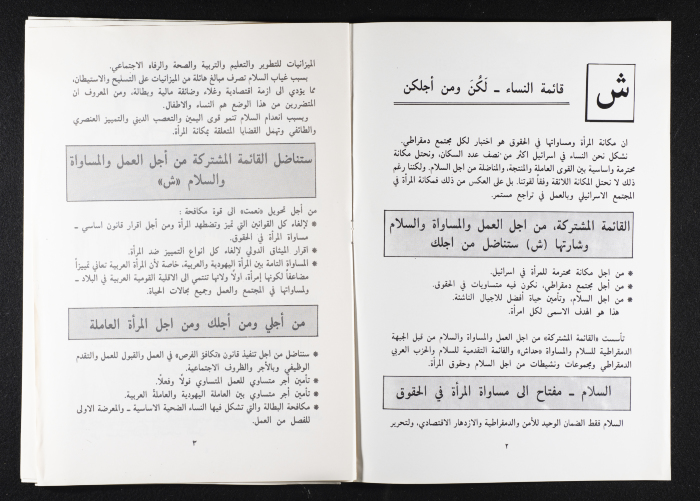 ش
قائمة النساء ـ لَكُنَ ومن أجلكن
ان مكانة المرأة ومساواتها في الحقوق هو اختبار لكل مجتمع دمقراطي.
نشكل نحن النساء في اسرائيل اكثر من نصف عدد السكان، ونحتل مكانة
محترمة واساسية بين القوى العاملة والمنتجة، والمناضلة من اجل السلام. ولكننا رغم
ذلك لا نحتل المكانة اللائقة وفقاً لقوتنا. بل على العكس من ذلك فمكانة المرأة في
المجتمع الاسرائيلي وبالعمل في تراجع مستمر.
القائمة المشتركة، من اجل العمل والمساواة والسلام
وشارتها (ش) ستناضل من اجلك
* من اجل مكانة محترمة للمرأة في اسرائيل.
* من أجل مجتمع دمقراطي، نكون فيه متساويات في الحقوق.
* من اجل السلام، وتأمين حياة أفضل للاجيال الناشئة.
هذا هو الهدف الاسمى لكل امرأة.
تأسست «القائمة المشتركة» من اجل العمل والمساواة والسلام من قبل الجبهة
الدمقراطية للسلام والمساواة «حداش» والقائمة التقدمية للسلام والحزب العربي
الدمقراطي ومجموعات ونشيطات من اجل السلام وحقوق المرأة.
السلام ـ مفتاح الى مساواة المرأة في الحقوق
السلام فقط الضمان الوحيد للأمن والدمقراطية والازدهار الاقتصادي، ولتحرير
٢
الميزانيات للتطوير والتعليم والتربية والصحة والرفاه الاجتماعي.
بسبب غياب السلام تصرف مبالغ هائلة من الميزانيات على التسليح والاستيطان،
مما يؤدي الى ازمة اقتصادية وغلاء وضائقة مالية وبطالة، ومن المعروف ان
المتضررين من هذا الوضع هم النساء والاطفال.
وبسبب انعدام السلام تنمو قوى اليمين والتعصب الديني والتمييز العنصري
والطائفي وتهمل القضايا المتعلقة بمكانة المرأة.
ستناضل القائمة المشتركة من أجل العمل والمساواة
والسلام «ش»
من أجل تحويل «نعمت» الى قوة مكافحة :
* لإلغاء كل القوانين التي تميز وتضطهد المرأة ومن أجل اقرار قانون اساسي ـ
مساواة المرأة في الحقوق.
* اقرار الميثاق الدولي لإلغاء كل انواع التمييز ضد المرأة.
* المساواة التامة بين المرأة اليهودية والعربية، خاصة لأن المرأة العربية تعاني تمييزاً
مضاعفاً لكونها إمرأة، اولاً ولانها تنتمي الى الاقلية القومية العربية في البلاد ـ
ولمساواتها في المجتمع والعمل وجميع مجالات الحياة.
من أجلي ومن أجلك ومن اجل المرأة العاملة
* ستناضل من اجل تنفيذ قانون «تكافؤ الفرص» في العمل والقبول للعمل والتقدم
الوظيفي وبالأجر والظروف الاجتماعية.
* تأمين أجر متساوي للعمل المتساوي قولًا وفعلًا.
* تأمين أجر متساوي بين العاملة اليهودية والعاملة العربية.
* مكافحة البطالة والتي تشكل فيها النساء الضحية الاساسية ـ والمعرضة الاولى
للفصل من العمل.
٣